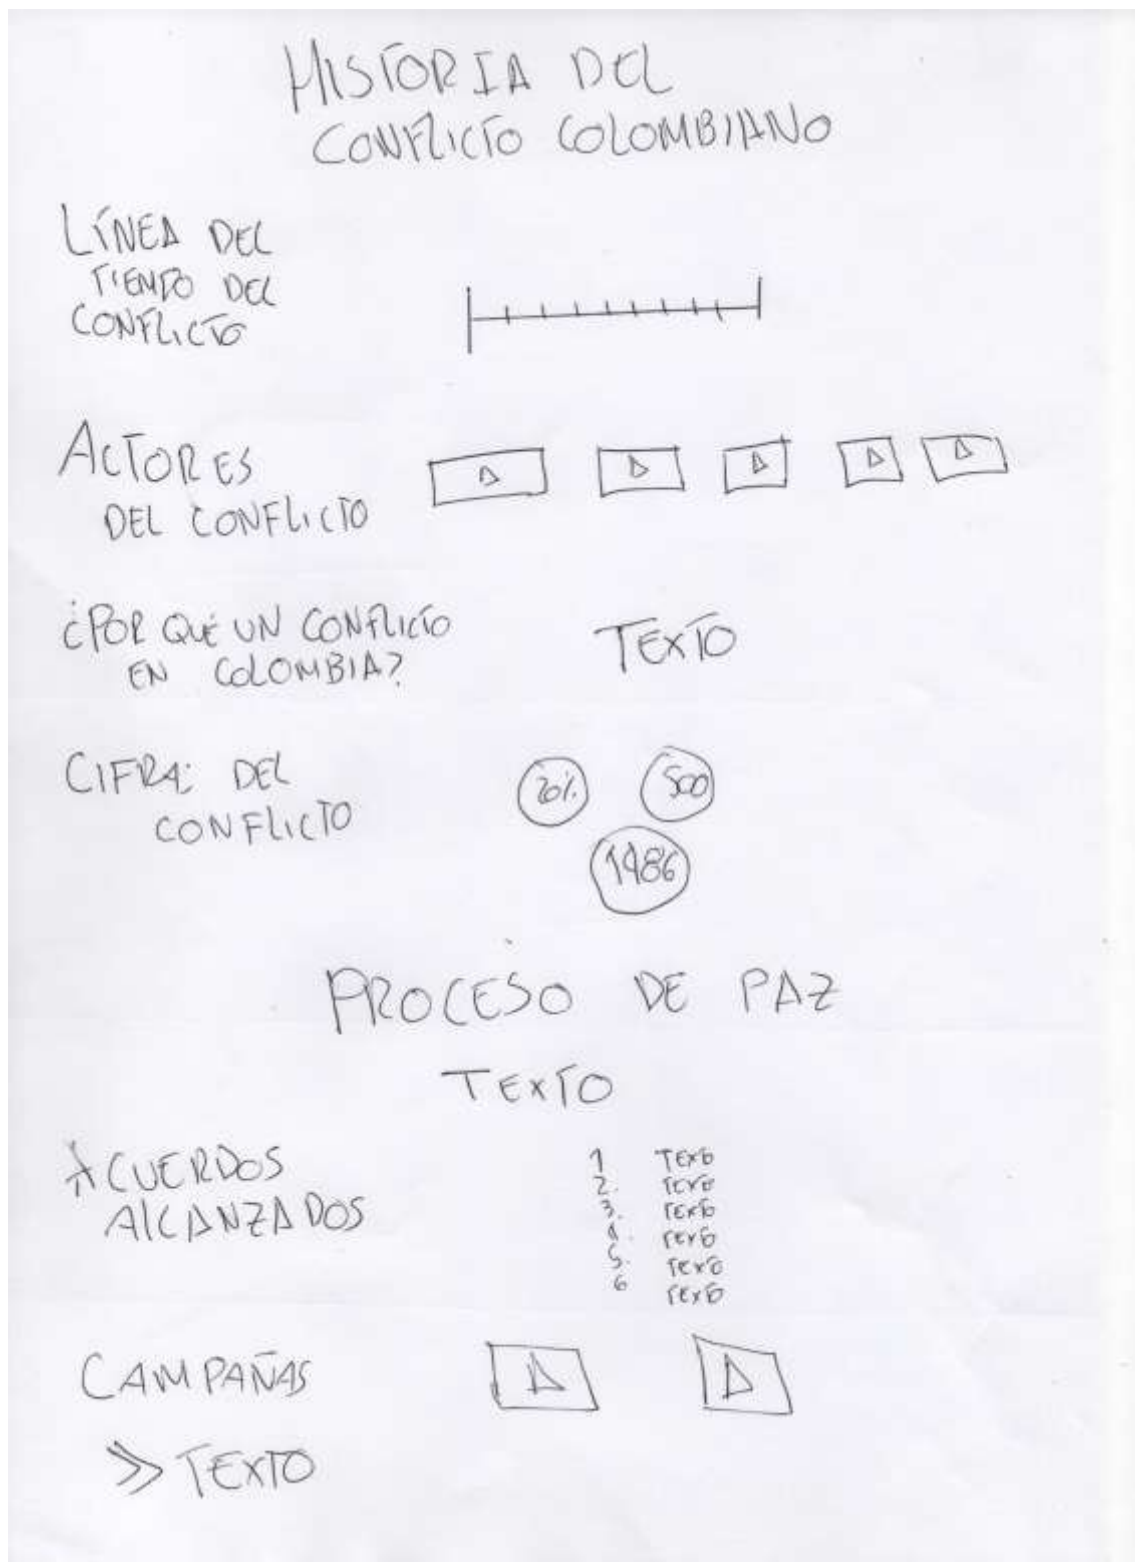 HISTORIA DEL
CONFLICTO COLOMBIANO
LÍNEA DEL
TIEMPO DEL
CONFLICTO
ACTORES
DEL CONFLICTO
¿POR QUÉ UN CONFLICTO
EN COLOMBIA?
TEXTO
CIFRAS DEL
CONFLICTO
20%
500
1986
PROCESO DE PAZ
TEXTO
ACUERDOS
ALCANZADOS
1 TEXTO
2. TEXTO
3. TEXTO
4. TEXTO
5. TEXTO
6 TEXTO
CAMPAÑAS
>> TEXTO